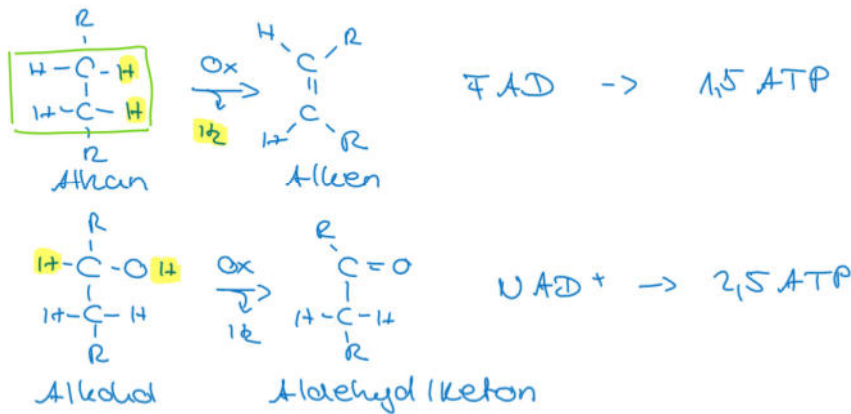 R
H-C-H
H-C-H
R
Alkan
Ox
H₂
H R
C
=
C
H R
Alken
FAD -> 1,5 ATP
R
H-C-OH
H-C-H
R
Alkohol
Ox
H₂
R
C=O
H-C-H
R
Aldehyd/Keton
NAD+ -> 2,5 ATP